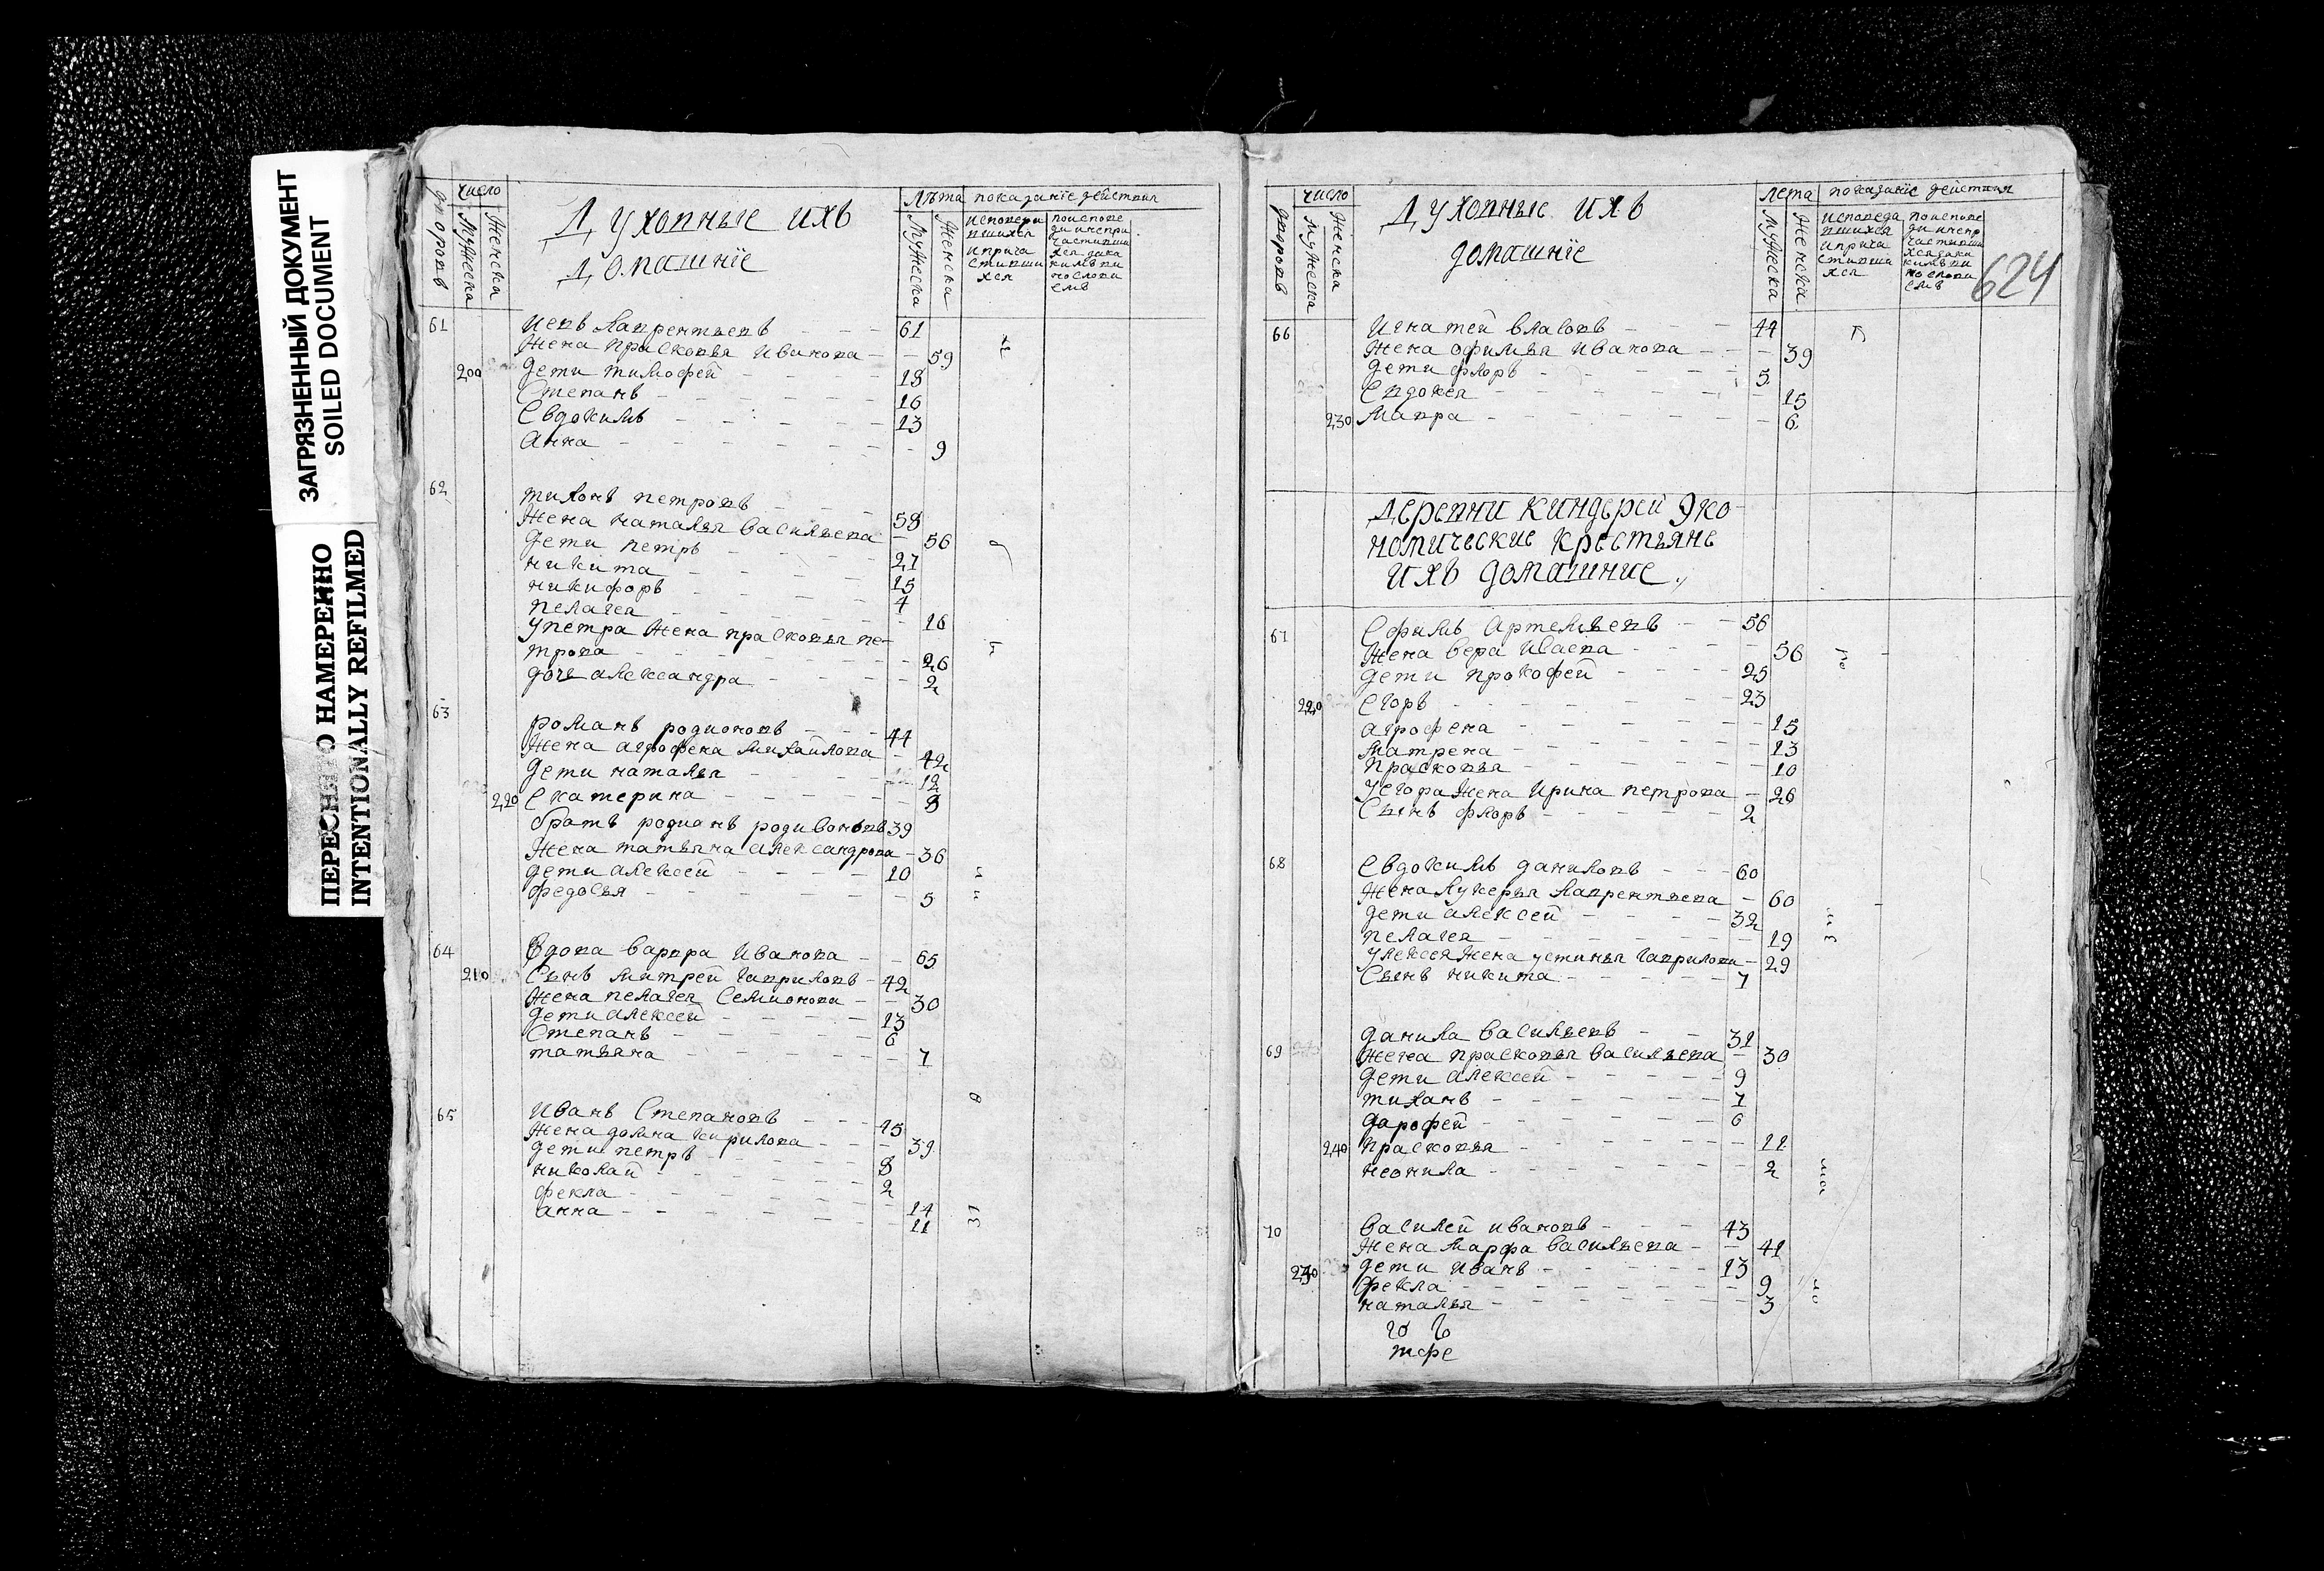 ЗАГРЯЗНЕННЫЙ ДОКУМЕНТ
SOILED DOCUMENT
ПЕРЕСНЯТО НАМЕРЕННО
INTENTIONALLY REFILMED
дворовъ
число
Мужеска
Женска
Духовные ихъ
домашнїе
Лѣта
показанїе действия
Мужеска
Женска
61
Иевъ Лаврентьевъ 61
Жена Прасковья Иванова 59
200 дети Тимофей 18
Степанъ 16
Евдокимъ 13
Анна 9
62
Тихонъ Петровъ 58
Жена Наталья Васильева 56
дети Петръ 27
Никита 15
Никифоръ 4
Пелагея 16
у Петра Жена Прасковья Пе-
трова 26
дочь Александра 2
63
Романъ Родионовъ 44
Жена Агрофена Михайлова 42
дети Наталья 12
220 Екатерина 8
братъ Родианъ Родивоновъ 39
Жена Татьяна Александрова 36
дети Алексей 10
Федосья 5
64
Вдова Варвра Иванова 65
210 Сынъ Митрей Гавриловъ 42
Жена Пелагея Семионова 30
дети Алексей 13
Степанъ 6
Татьяна 7
65
Иванъ Степановъ 45
Жена домна Кирилова 39
дети Петръ 8
Николай 2
Фекла 14
Анна 11
624
дворовъ
число
Мужеска
Женска
Духовные ихъ
домашнїе
лета
показанїе действия
Мужеска
Женска
66
Игнатей Власовъ 44
Жена Офимья Иванова 39
дети Флоръ 5
Евдокея 15
230 Мавра 6
Деревни Киндерей Эко-
номические крестьяне
ихъ домашние
67
Ефимъ Артемьевъ 56
Жена Вера Исаева 56
дети Прокофей 25
220 Егоръ 23
Агрофена 15
Матрена 13
Прасковья 10
у Егора Жена Ирина Петрова 26
Сынъ Флоръ 2
68
Евдокимъ Даниловъ 60
Жена Лукерья Лаврентьева 60
дети Алексей 32
Пелагея 19
у Алексея Жена Устинья Гаврилова 29
Сынъ Никита 7
69
Данила Васильевъ 31
Жена Прасковья Васильева 30
дети Алексей 9
Тиханъ 7
Дарофей 6
240 Прасковья 11
Неонила 2
70
Василей Ивановъ 43
Жена Марфа Васильева 41
230 дети Иванъ 13
Фекла 9
Наталья 3